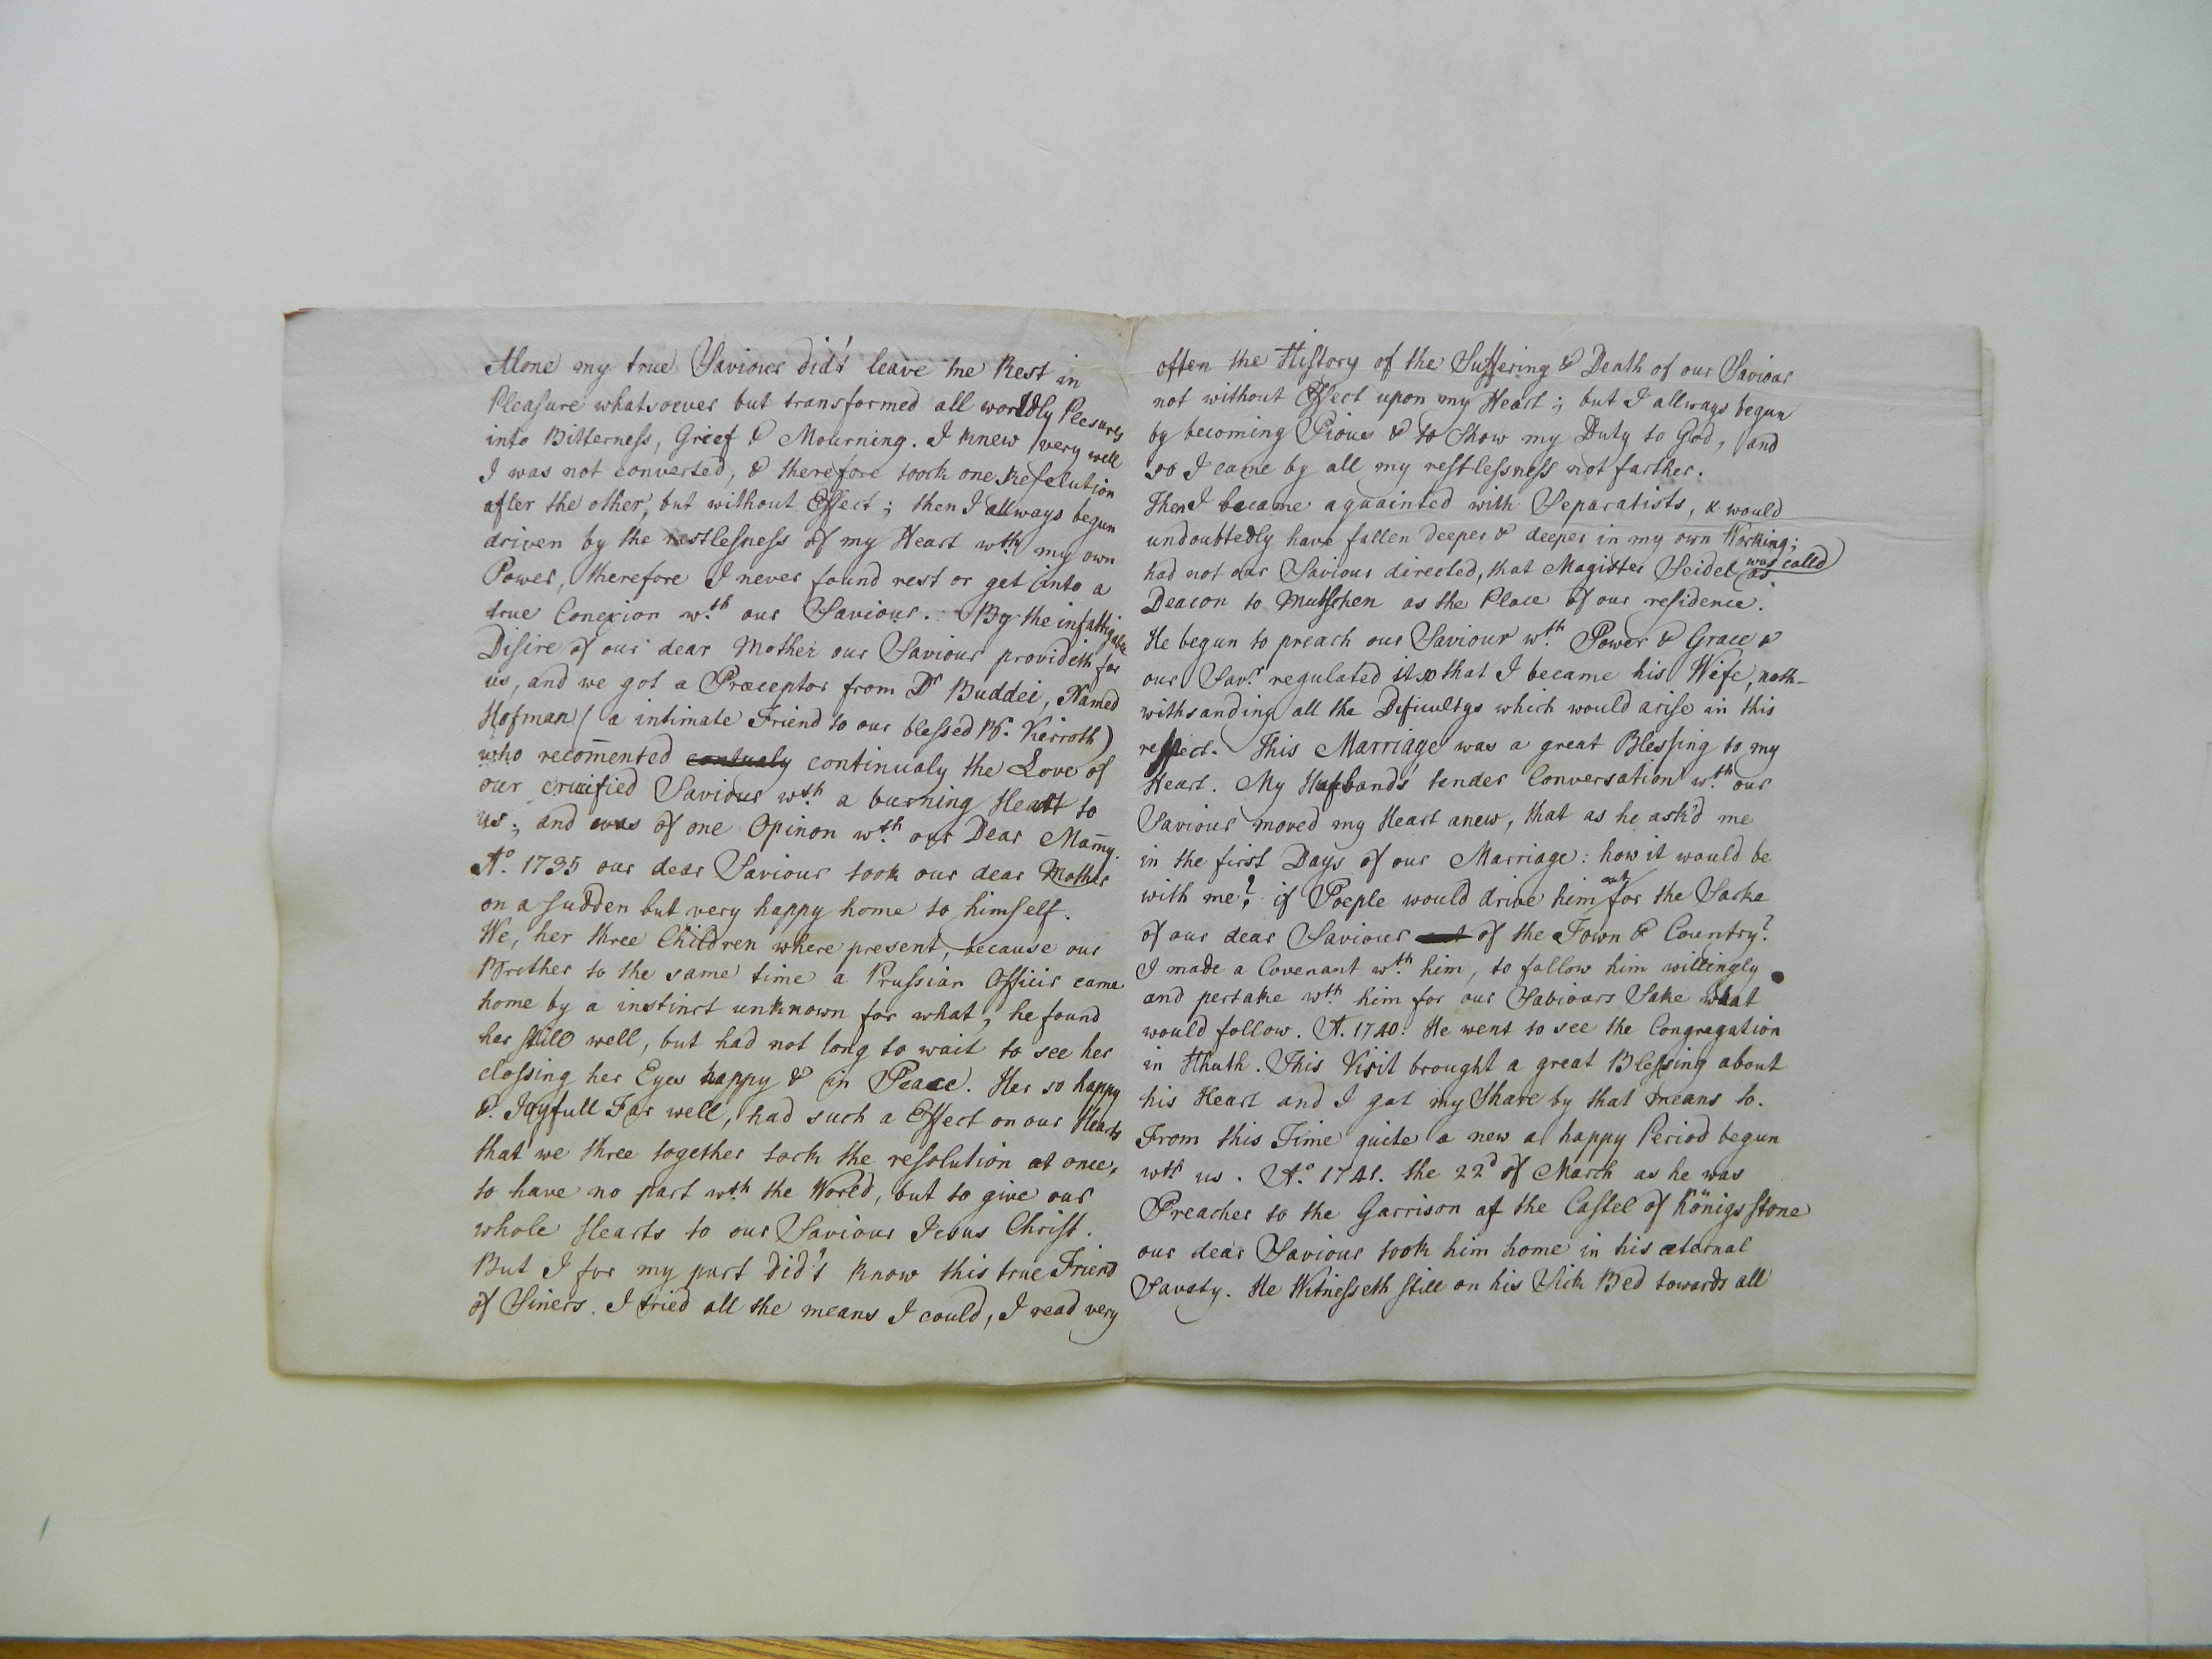 Alone my true Saviour did't leave me Rest in
Pleasure whatsoever but transformed all worldly Plesures
into Bitterness, Grief & Mourning. I knew very well
I was not converted, & therefore took one Resolution
after the other, but without Effect; then I allways begun
driven by the restlesness of my Heart wth my own
Power, therefore I never found rest or get into a
true Conexion wth our Saviour. By the infattigable
Disire of our dear Mother our Saviour provideth for
us, and we got a Præceptor from Dr Buddei, Named
Hofman (a intimate Friend to our blessed Br. Kerroth)
who recom̄ented contualy continualy the Love of
our crucified Saviour wth a burning Heart to
us; and was of one Opinon wth our Dear Mam̄y.
Ao. 1735 our dear Saviour took our dear Mother
on a sudden but very happy home to himself.
We, her three Children where present, because our
Brother to the same time a Prussian Officir came
home by a instinct unknown for what, he found
her still well, but had not long to wait to see her
clossing her Eyes happy & in Peace. Her so happy
&. Joyfull Far well, had such a Effect on our Hearts
that we three together took the resolution at once,
to have no part wth the World, but to give our
whole Hearts to our Saviour Jesus Christ.
But I for my part did't know this true Friend
of Siners. I tried all the means I could, I read very
often the History of the Suffering & Death of our Saviour
not without Effect upon my Heart; but I allways begun
by becoming Pious & to Show my Duty to God, and
so I came by all my restlessness not farther.
Then I became aquainted with Separatists, & would
undoubtedly have fallen deeper & deeper in my own Working;
had not our Saviour directed, that Magister Seidel was calld as
Deacon to Mutschen as the Place of our residence.
He begun to preach our Saviour wth Power & Grace &
our Savr. regulated it so that I became his Wife, noth-
withsanding all the Dificultys which would arise in this
respect. This Marriage was a great Blessing to my
Heart. My Husbands tender Conversation wth our
Saviour moved my Heart anew, that as he ask'd me
in the first Days of our Marriage: how it would be
with me? if Poeple would drive him out for the Sacke
of our dear Saviour out of the Town & Country?
I made a Covenant wth him, to follow him willingly
and pertake wth him for our Sabiours Sake what
would follow. A. 1740. He went to see the Congregation
in Hhuth. This Visit brought a great Blessing about
his Heart and I got my Share by that means to.
From this Time quite a new a happy Period begun
wth us. Ao. 1741. the 22d of March as he was
Preacher to the Garrison af the Castel of Königsstone
our dear Saviour took him home in his æternal
Savety. He Witnesseth still on his Sick Bed towards all